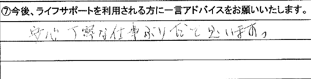 ⑦今後、ライフサポートを利用される方に一言アドバイスをお願いいたします。
安心 丁寧な仕事ぶりだと思います。